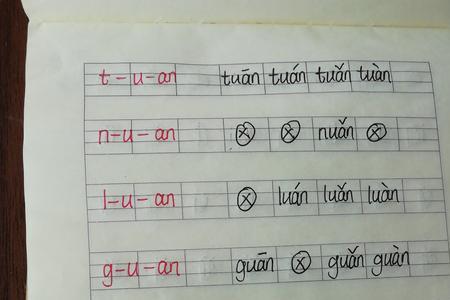 t-u-an tuān tuán tuǎn tuàn
n-u-an ⓧ ⓧ nuǎn ⓧ
l-u-an ⓧ luán luǎn luàn
g-u-an guān ⓧ guǎn guàn